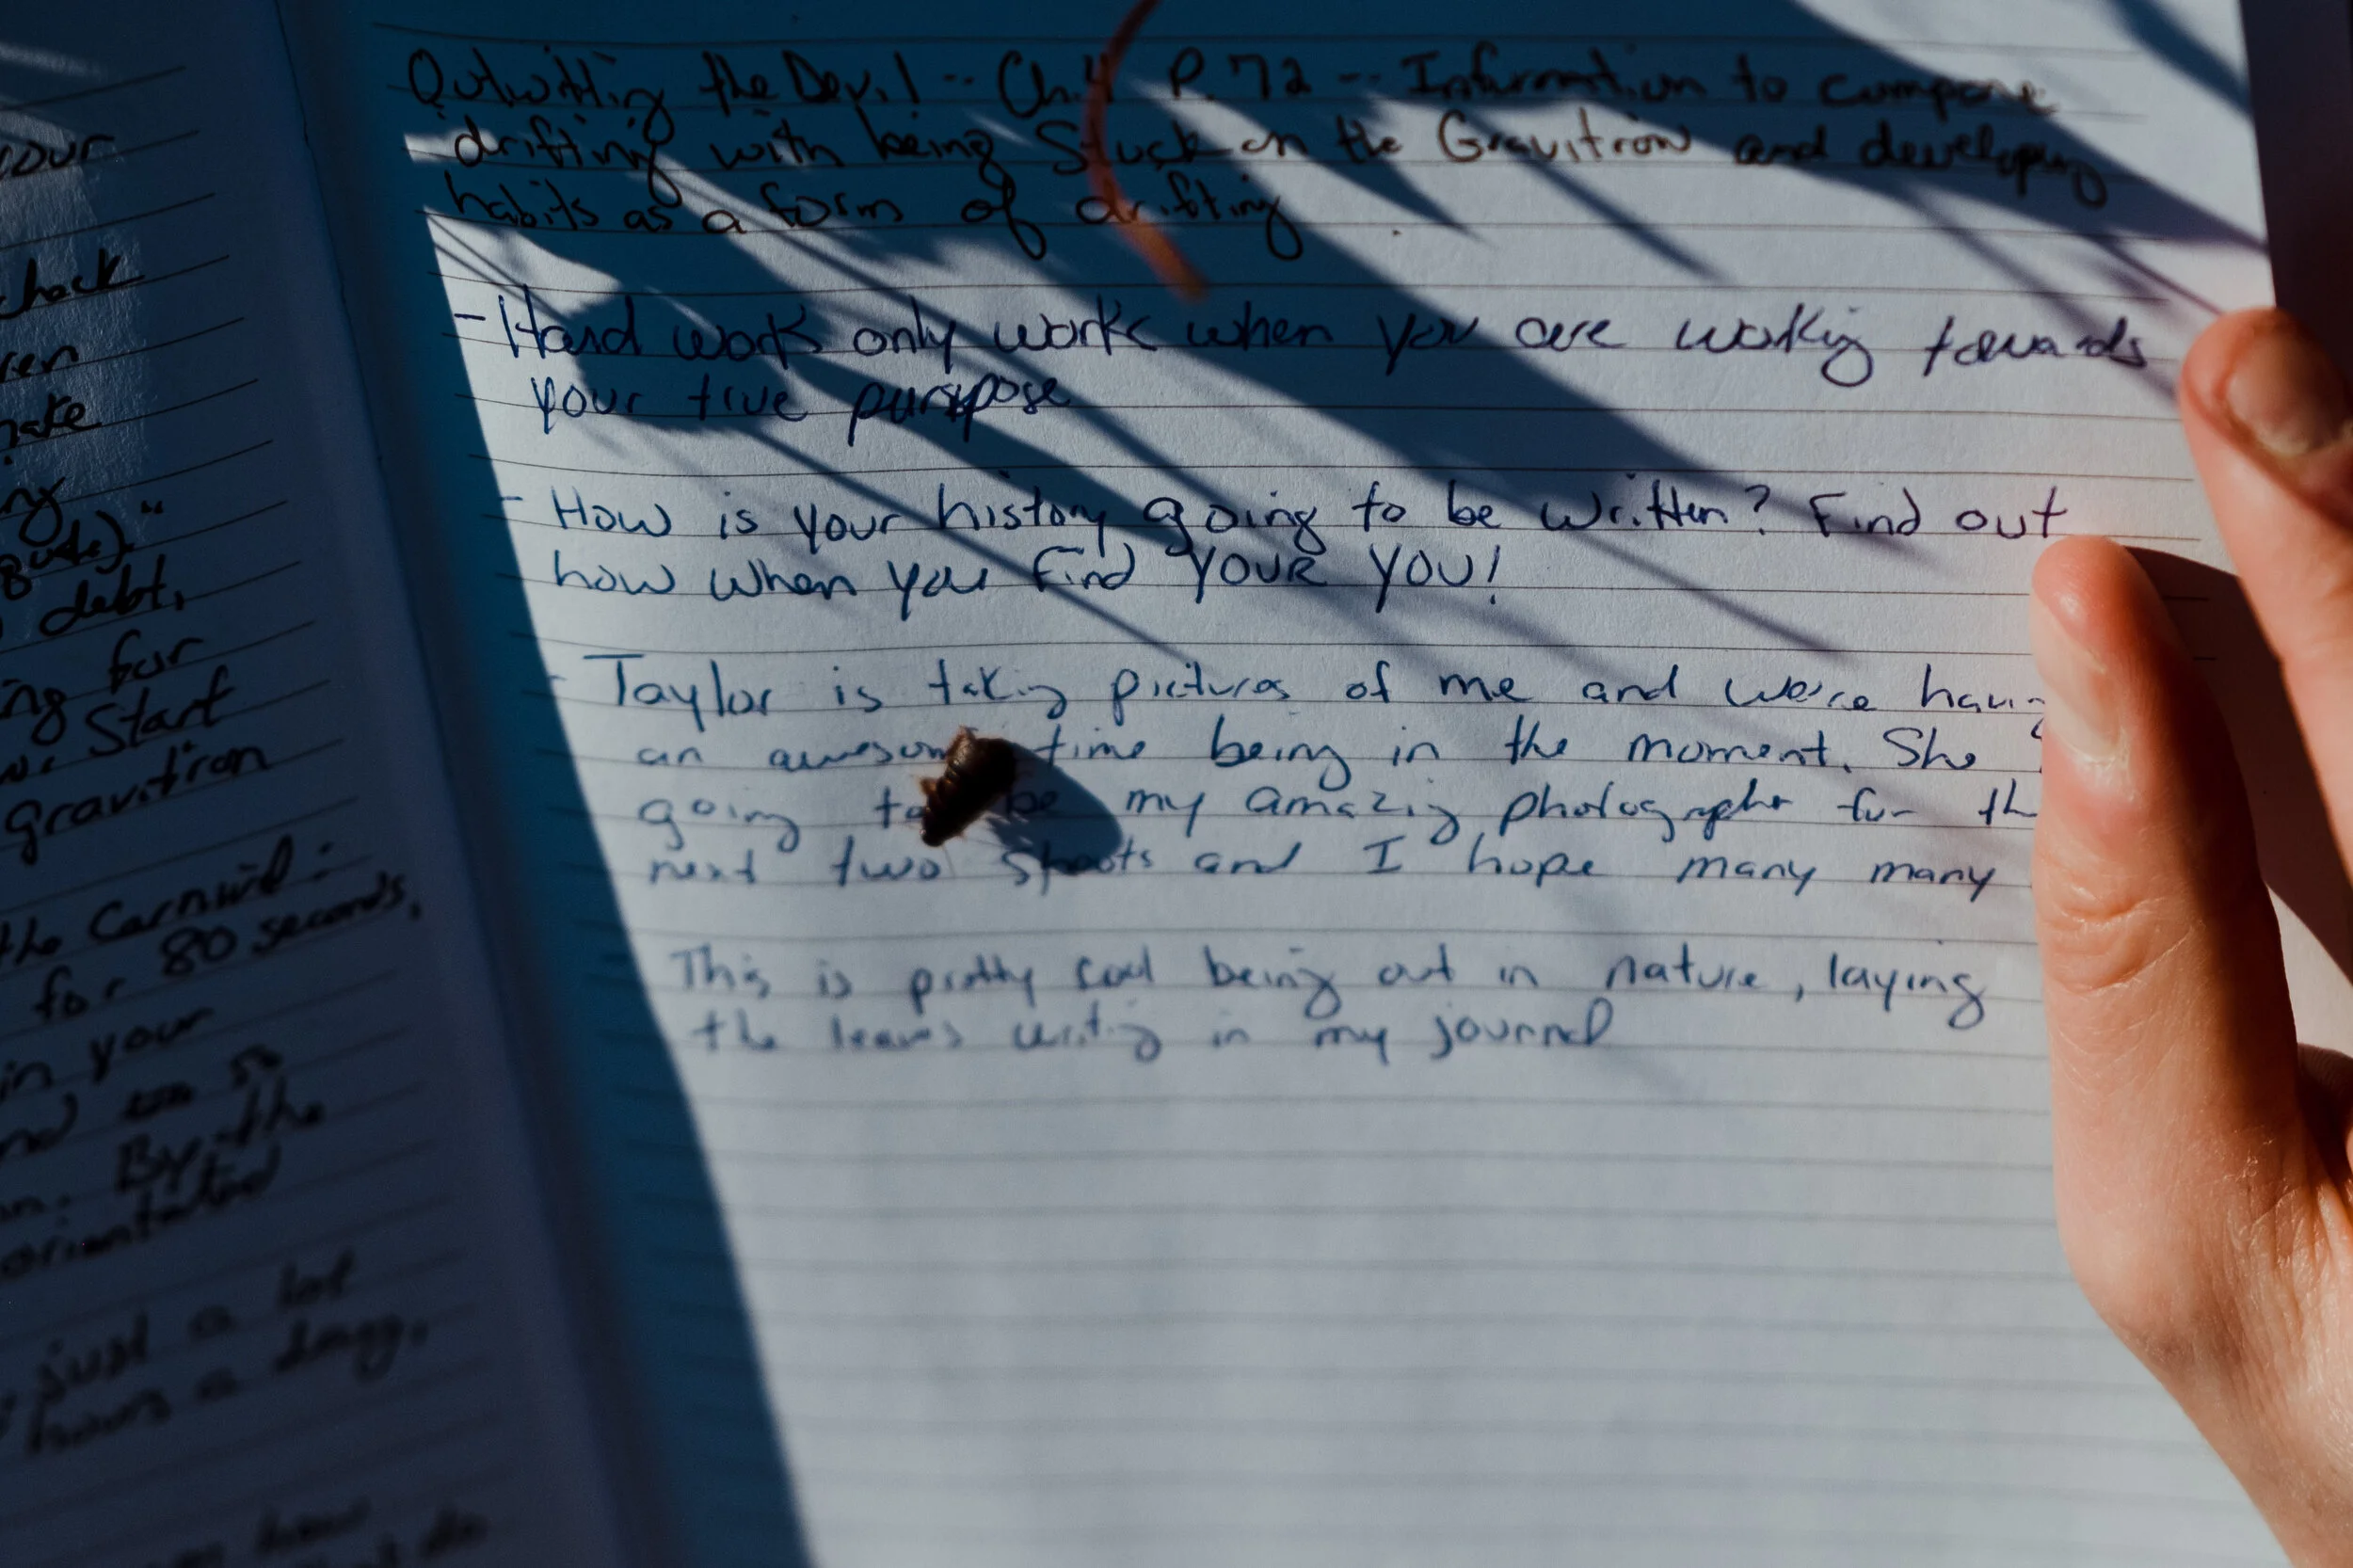 our
chock
en
make
ng
gude)."
debt,
ng for
Start
gravitron
the Carnival:
for 80 seconds,
in your
nd so
n. By the
orientated
just a lot
hours a day,
how
do
Outwitting the Devil -- Ch. 4 P. 72 -- Information to compare
drifting with being Stuck on the Gravitron and developing
habits as a form of drifting
- Hard work only works when you are working towards
your true purpose
- How is your history going to be written? Find out
how when you find YOUR YOU!
- Taylor is taking pictures of me and we're having
an awesome time being in the moment. She
going to be my amazing photographer for th
next two shoots and I hope many many
This is pretty cool being out in nature, laying
the leaves writing in my journal